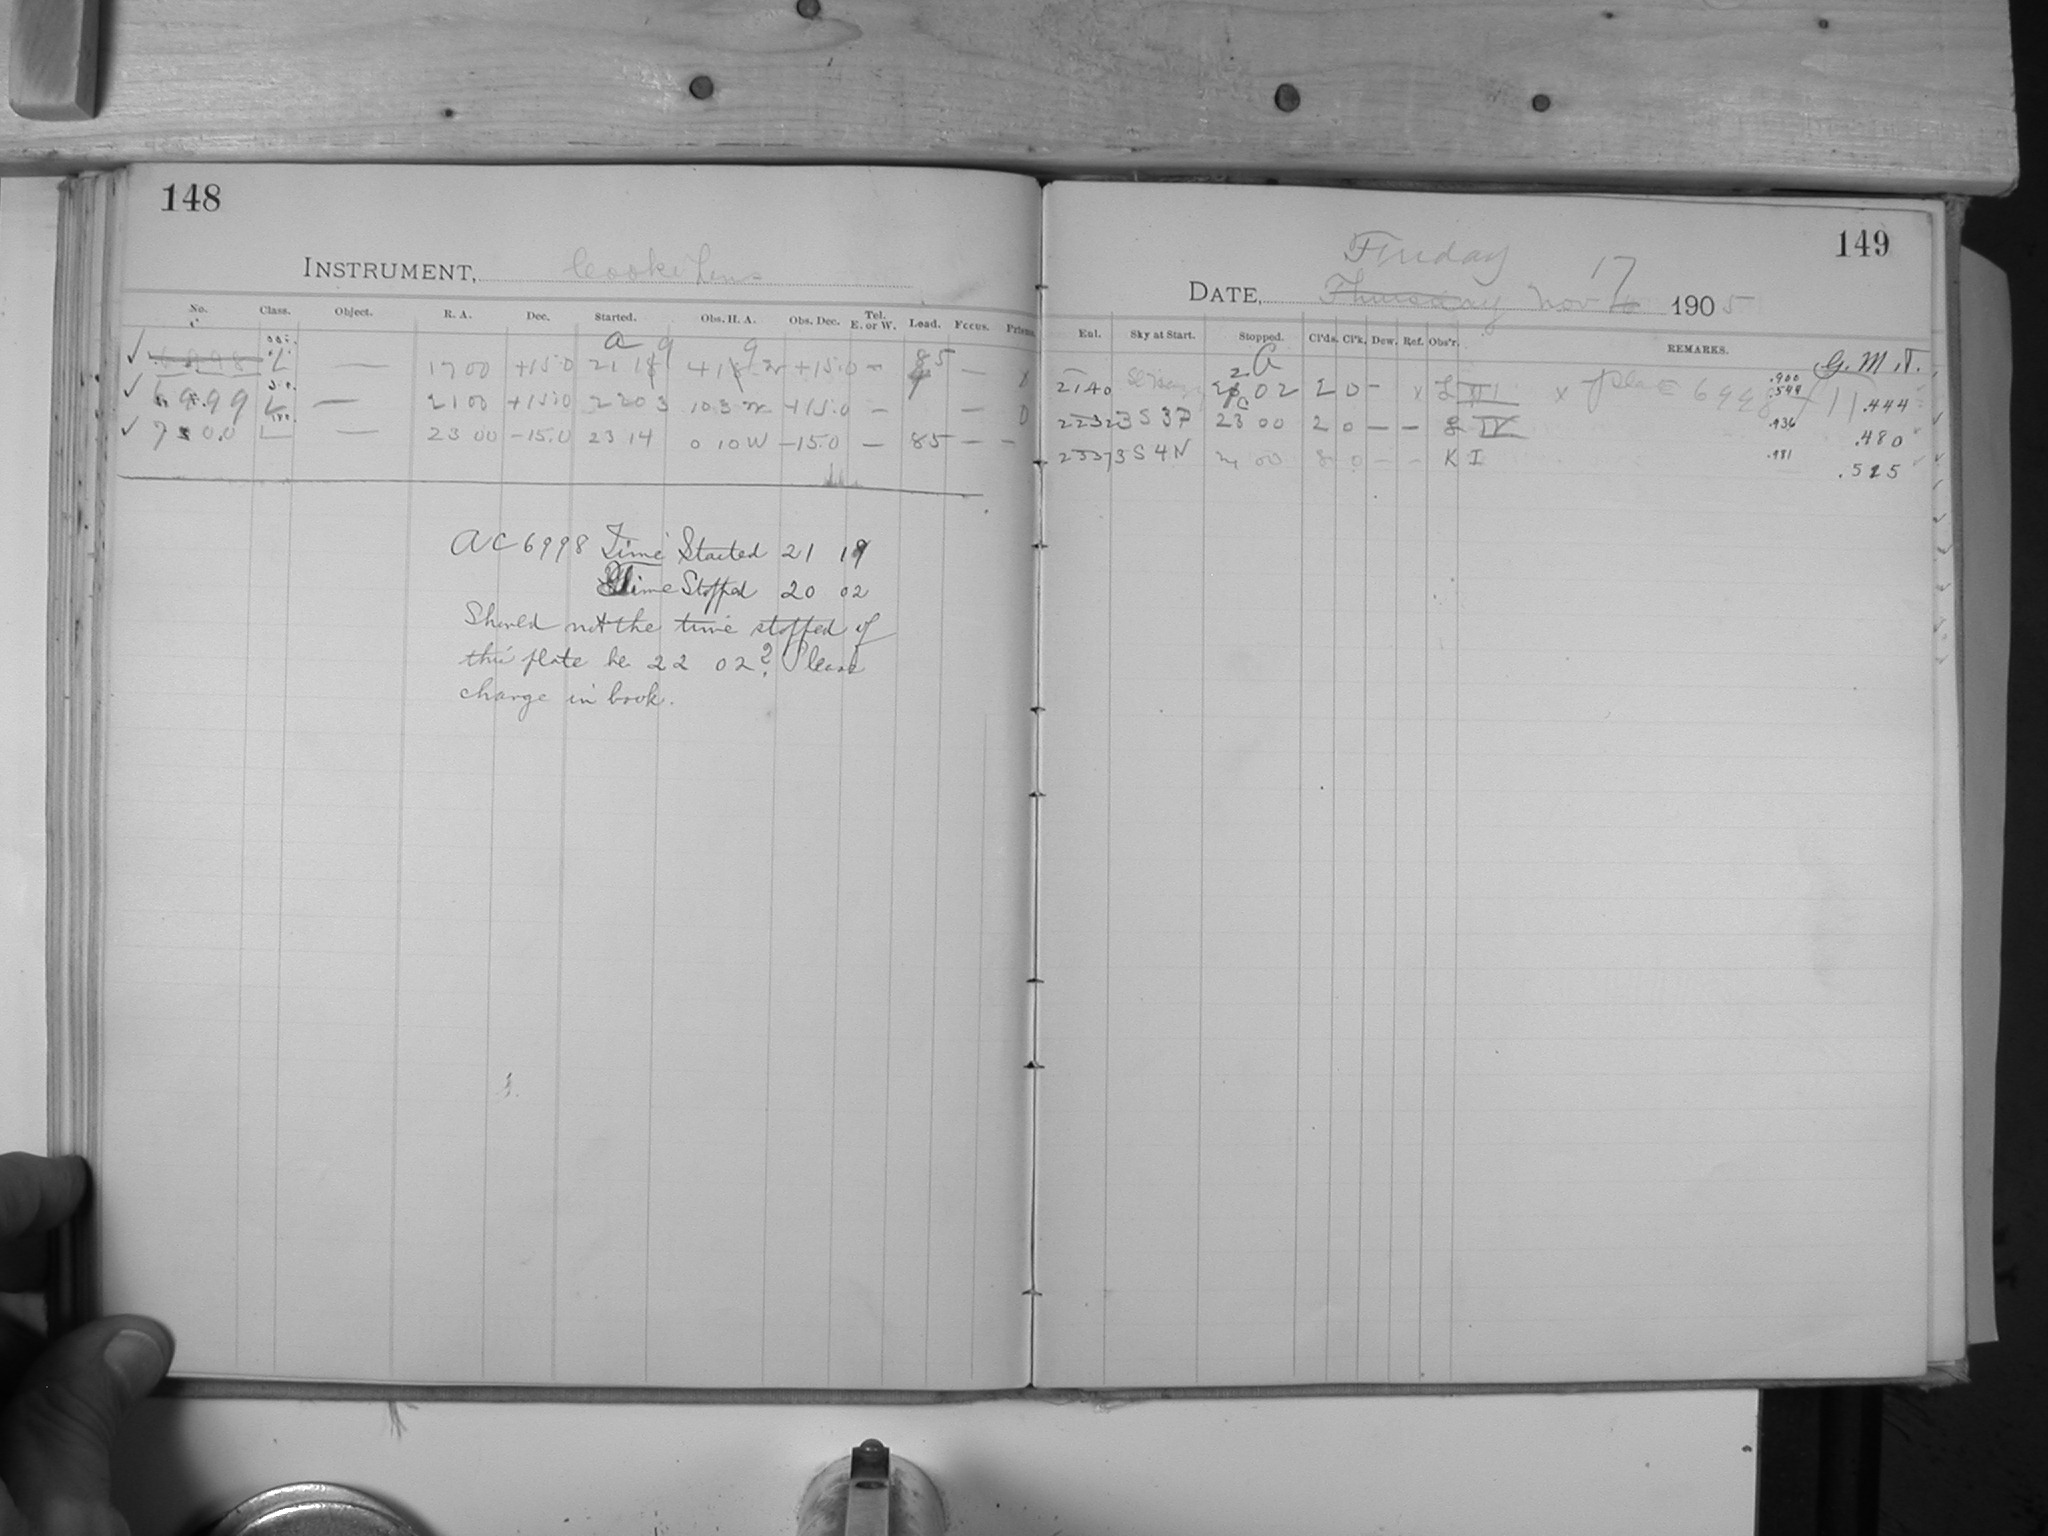 148
INSTRUMENT, Cooke Lens
No. Class. Object. R. A. Dec. Started. Obs. H. A. Obs. Dec. Tel. E. or W. Load. Focus. Prisms.
✓ 6998 L — 17 00 +15.0 21 19 4 19 W +15.0 — 85 —
✓ 6999 L — 21 00 +15.0 22 03 1 03 W +15.0 — — 0
✓ 7000 L — 23 00 -15.0 23 14 0 10 W -15.0 — 85 — —
AC 6998 Time Started 21 19
Time Stopped 20 02
Should not the time stopped of
this plate be 22 02? Please
change in book.
149
Friday
DATE, Thursday Nov 17 1905
Eul. Sky at Start. Stopped. Cl'ds. Cl'k. Dew. Ref. Obs'r. REMARKS. G. M. T.
2140 22 02 2 0 — x L III x plate 6998 .900 .444
2232 3 S 3 P 23 00 2 0 — — L IV .936 .480
2337 3 S 4 N 00 8 0 — — K I .981 .525